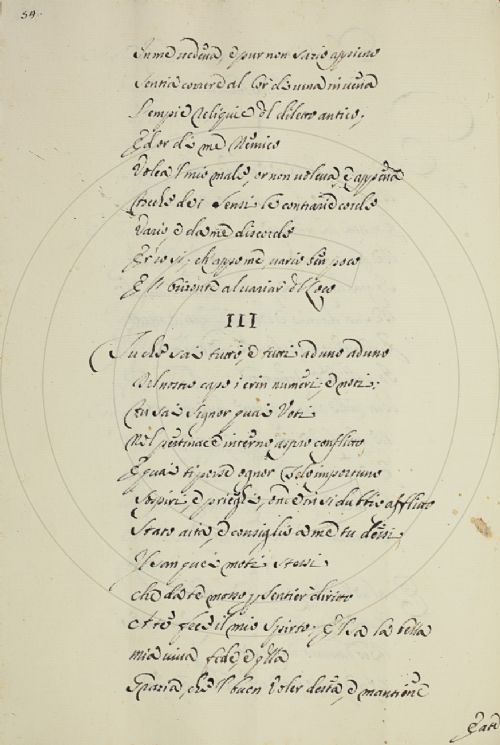 59.
In me vedeva, e pur non sano appieno
Sentia correr al Cor di vena in vena
L'empie Reliquie del diletto antico;
Ed or di me Nemico
Volea 'l mio male, or non voleva, e appena
che dei Sensi le contrarie corde
Vario e da me discorde
Er'io sì, ch'appo me vario è un poco
E il al variar del Loco
III
Tu che sai tutti, e tutti ad uno ad uno
Del nostro capo i crin numeri, e noti;
Tu sai Signor quai Voti
Nel pertinace interno aspro conflitto,
E quai ti porsi ognor Telo importuno
Sospiri, e prieghi, onde in sì dubbio afflitto
Stato aita, e consiglio a me tu dessi,
Il san quei moti stessi
che da te mosso pel sentier diritto
A te fece il mio Spirto, E il sa la bella
mia viva fede, e quella
Grazia, che 'l buon Voler desta, e mantiene